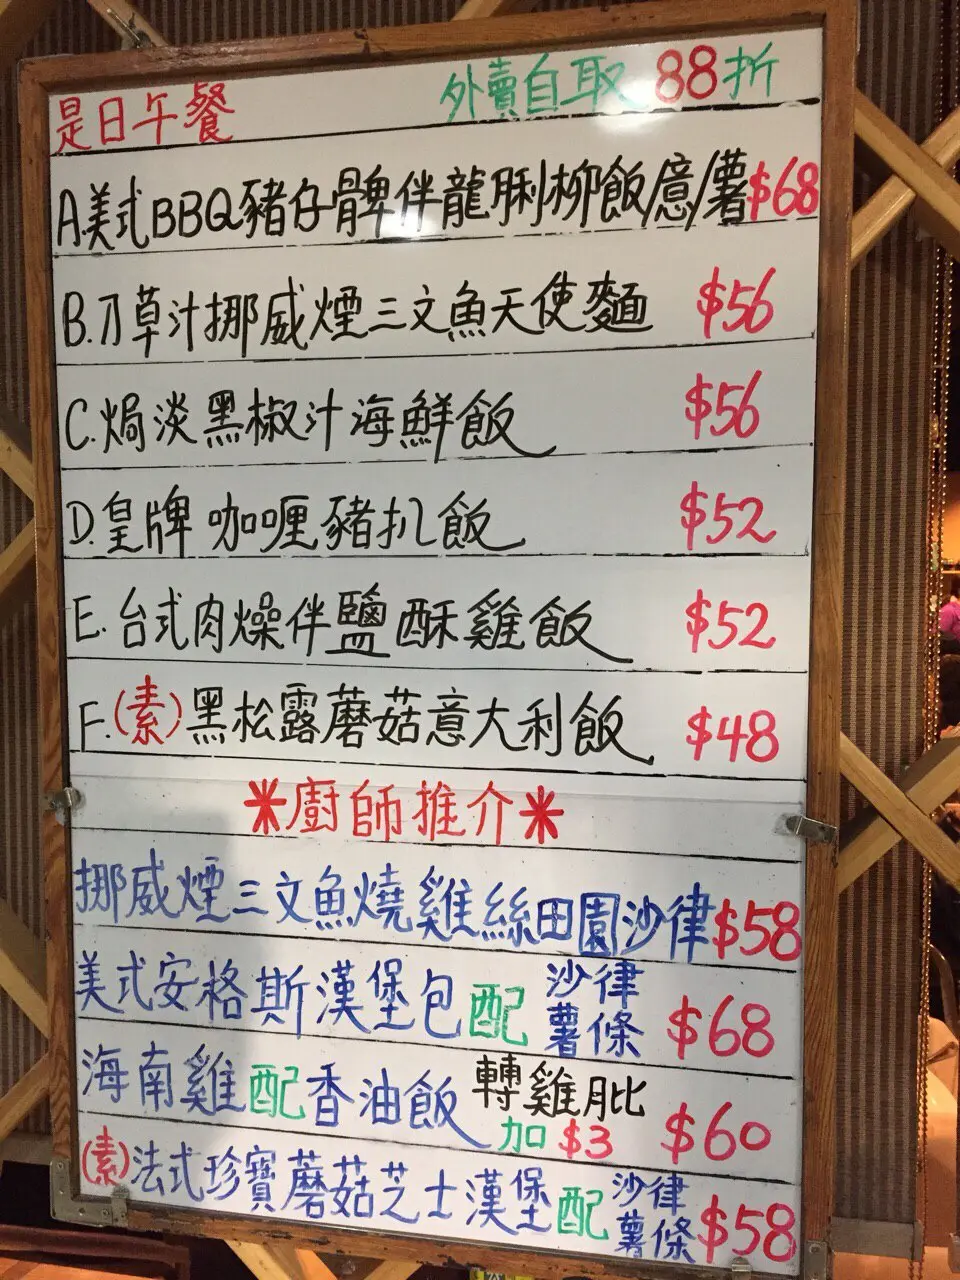 是日午餐 外賣自取 88折
A.美式BBQ豬仔髀伴龍脷柳飯/意/薯 $68
B.刀草汁挪威煙三文魚天使麵 $56
C.焗淡黑椒汁海鮮飯 $56
D.皇牌咖喱豬扒飯 $52
E.台式肉燥伴鹽酥雞飯 $52
F.(素)黑松露蘑菇意大利飯 $48
*廚師推介*
挪威煙三文魚燒雞絲田園沙律 $58
美式安格斯漢堡包配沙律薯條 $68
海南雞配香油飯 轉雞肶加$3 $60
(素)法式珍寶蘑菇芝士漢堡配沙律薯條 $58